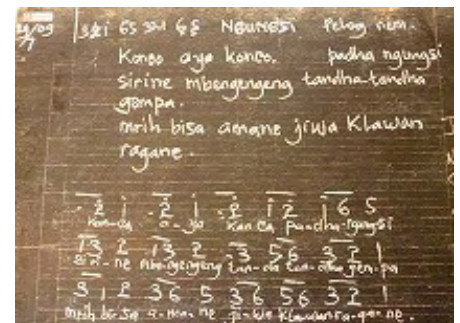 NGUNGSI Pelog nem.
Konco ayo konco. padha ngungsi
sirine mbengengeng tandha-tandha
gempa.
mrih bisa amane jiwa Klawan
ragane.
2 i 2 i 2 i 2 i 6 5
Kan-ca a-yo kan ca pa-dha-ngungsi
3 2 1 3 2 3 5 6 3 2
si-ri-ne mbe-ngengeng tan-da tan-dha gem-pa
3 1 2 3 6 5 3 6 5 6 3 2
mrih bi-sa a-man-ne ji-wa Klawan ra-ga-ne.